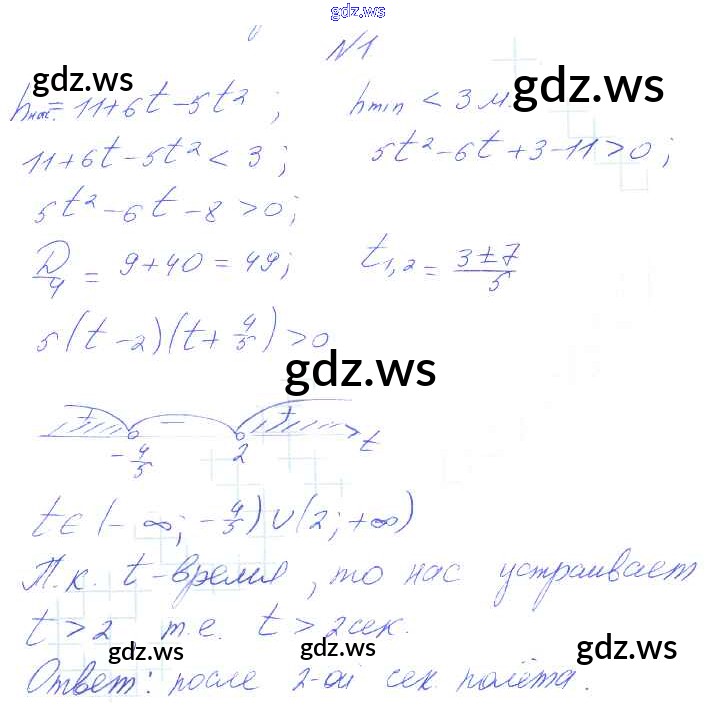 gdz.ws
N1
gdz.ws gdz.ws
hнач. = 11+6t-5t² ; hmin < 3 м.
11+6t-5t² < 3 ; 5t²-6t+3-11>0 ;
5t²-6t-8>0;
D/4 = 9+40=49; t1,2 = (3±7)/5
5(t-2)(t+4/5)>0
gdz.ws
+ - +
-4/5 2 t
t∈(-∞; -4/5)∪(2;+∞)
gdz.ws
Т.к. t-время, то нас устраивает
t>2 т.е. t>2сек.
gdz.ws gdz.ws gdz.ws
Ответ: после 2-ой сек. полёта.